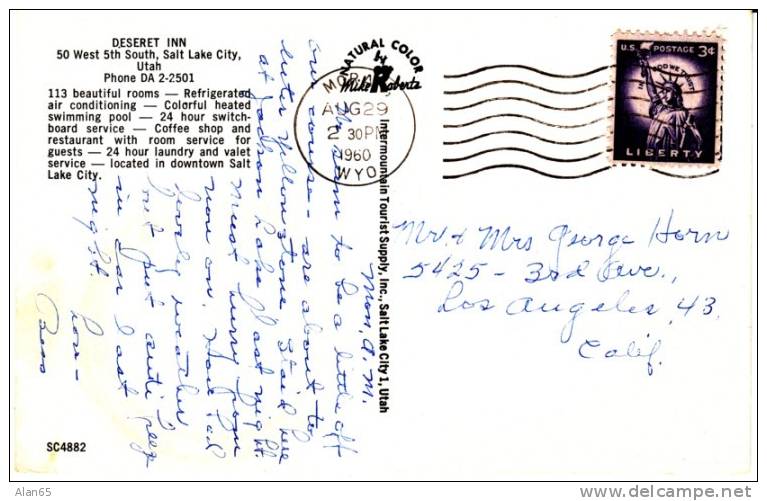 DESERET INN
50 West 5th South, Salt Lake City,
Utah
Phone DA 2-2501
113 beautiful rooms — Refrigerated
air conditioning — Colorful heated
swimming pool — 24 hour switch-
board service — Coffee shop and
restaurant with room service for
guests — 24 hour laundry and valet
service — located in downtown Salt
Lake City.
Mon. A.M.
to be a little off
our course - are about to
enter Yellowstone. Stayed here
at Jackson Lake last night.
Must hurry from
now on. Have had
lovely weather
but put anti freeze
in car last
night.
Love -
Bess
SC4882
NATURAL COLOR
by
Mike Roberts
MORAN
AUG 29
2 30 PM
1960
WYO.
Intermountain Tourist Supply, Inc., Salt Lake City 1, Utah
U.S. POSTAGE 3¢
IN GOD WE TRUST
LIBERTY
Mr. & Mrs George Horn
5425 - 3rd Ave.,
Los Angeles, 43,
Calif.
Alan65
www.delcampe.net